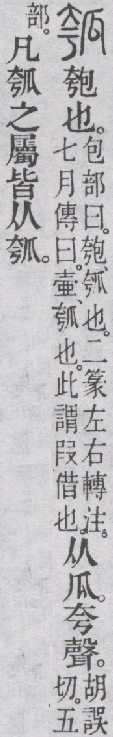 瓠 匏也。包部曰。匏、瓠也。二篆左右轉注。七月傳曰。壷、瓠也。此謂叚借也。从瓜。夸聲。胡誤切。五
部。凡瓠之屬皆从瓠。